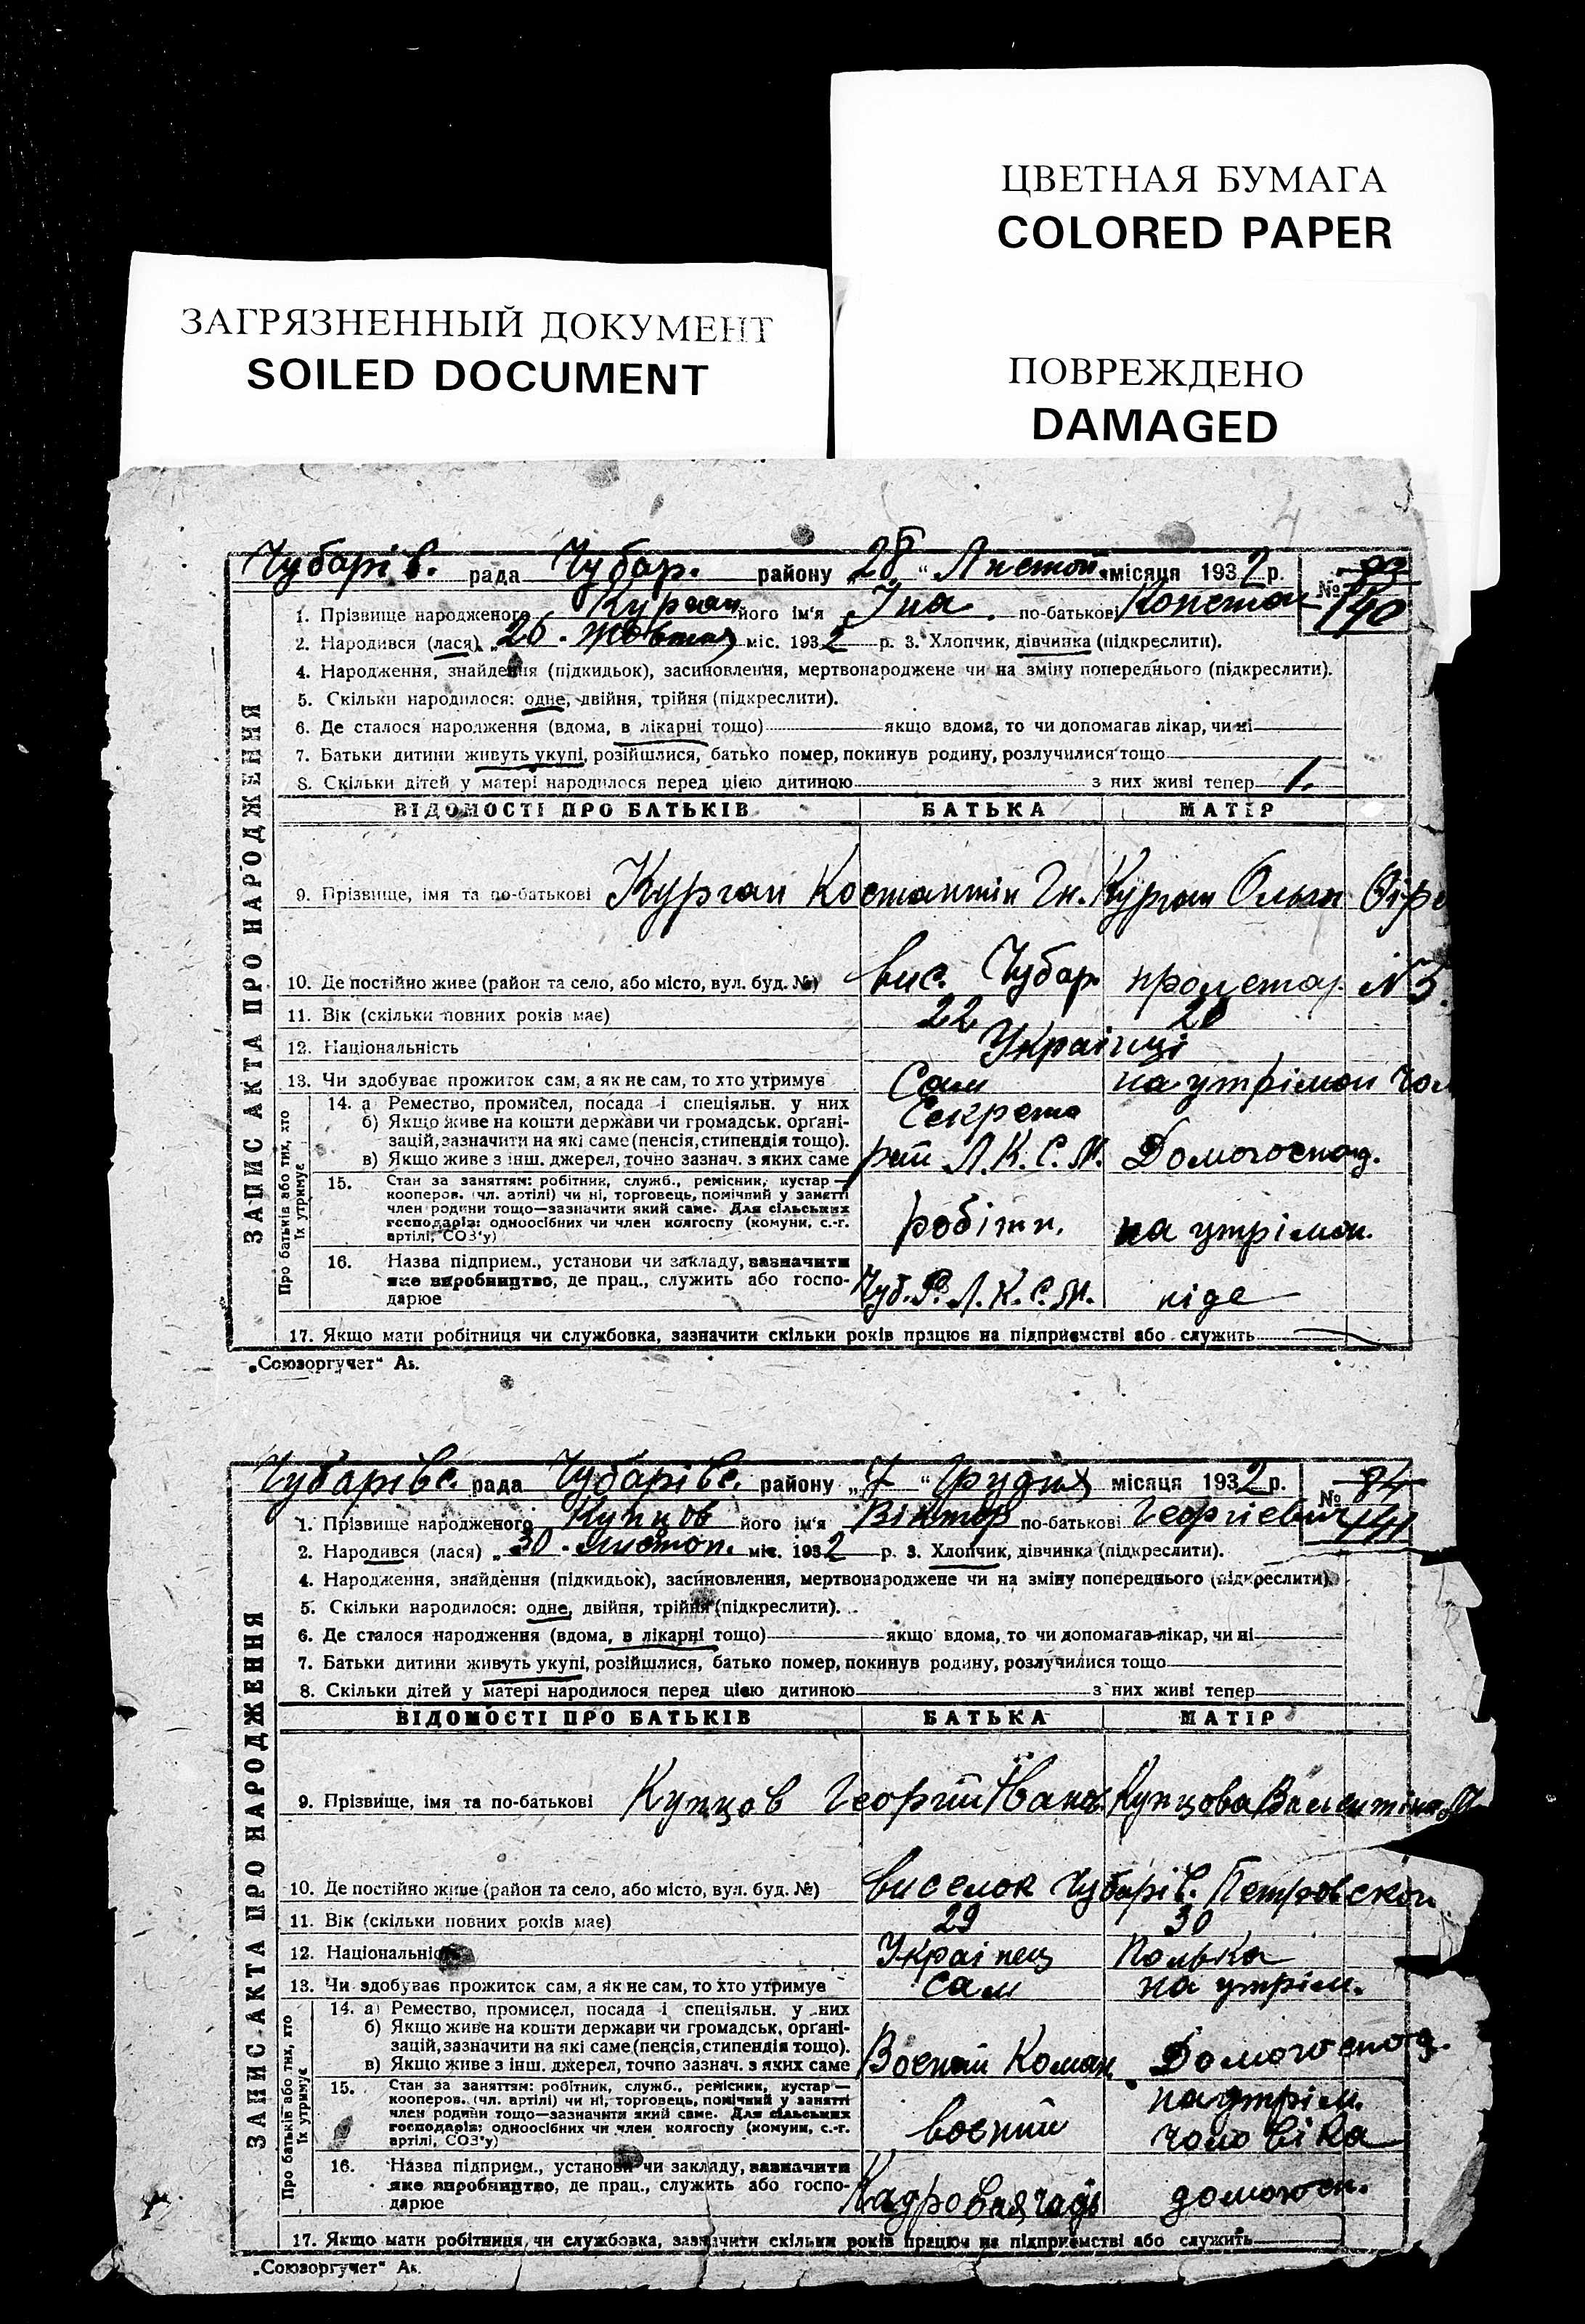 ЦВЕТНАЯ БУМАГА
COLORED PAPER
ЗАГРЯЗНЕННЫЙ ДОКУМЕНТ
SOILED DOCUMENT
ПОВРЕЖДЕНО
DAMAGED
ЗАПИС АКТА ПРО НАРОДЖЕННЯ
Чубарів. рада Чубар. району „28“ Листоп. місяця 1932 р. № 93
140
1. Прізвище народженого Курган його ім'я Іна по-батькові Констан
2. Народився (лася) „26. Жовтня міс. 1932 р. 3. Хлопчик, дівчинка (підкреслити).
4. Народження, знайдення (підкидьок), засиновлення, мертвонароджене чи на зміну попереднього (підкреслити).
5. Скільки народилося: одне, двійня, трійня (підкреслити).
6. Де сталося народження (вдома, в лікарні тощо) якщо вдома, то чи допомагав лікар, чи ні
7. Батьки дитини живуть укупі, розійшлися, батько помер, покинув родину, розлучилися тощо
8. Скільки дітей у матері народилося перед цією дитиною з них живі тепер 1.
ВІДОМОСТІ ПРО БАТЬКІВ БАТЬКА МАТІР
9. Прізвище, імя та по-батькові Курган Костантін Гн. Курган Ольга
10. Де постійно живе (район та село, або місто, вул. буд. №) вис. Чубар. пролетар. N 5.
11. Вік (скільки повних років має) 22 20
12. Національність Українці
13. Чи здобуває прожиток сам, а як не сам, то хто утримує Сам на утріман чол
Про батьків або тих, хто їх утримує
14. а) Ремество, промисел, посада і спеціяльн. у них
б) Якщо живе на кошти держави чи громадськ. органі-
зацій, зазначити на які саме (пенсія, стипендія тощо).
в) Якщо живе з інш. джерел, точно зазнач. з яких саме
Секрета
рий Л.К.С.М. Домогоспод.
15. Стан за заняттям: робітник, служб., ремісник, кустар—
кооперов. (чл. артілі) чи ні, торговець, помічний у занятті
член родини тощо—зазначити який саме. Для сільських
господарів: одноосібних чи член колгоспу (комуни, с.-г.
артілі, СОЗ'у)
робітн. на утріман.
16. Назва підприєм., установи чи закладу, зазначити
яке виробництво, де прац., служить або госпо-
дарює
Чуб. Р. Л.К.С.М. ніде
17. Якщо мати робітниця чи службовка, зазначити скільки років працює на підприємстві або служить
„Союзоргучет“ Ак.
ЗАПИС АКТА ПРО НАРОДЖЕННЯ
Чубарівс. рада Чубарівс. району „7“ Грудня місяця 1932 р. № 94
141
1. Прізвище народженого Купцов його ім'я Віктор по-батькові Георгієвич
2. Народився (лася) „30. Листоп. міс. 1932 р. 3. Хлопчик, дівчинка (підкреслити).
4. Народження, знайдення (підкидьок), засиновлення, мертвонароджене чи на зміну попереднього (підкреслити).
5. Скільки народилося: одне, двійня, трійня (підкреслити).
6. Де сталося народження (вдома, в лікарні тощо) якщо вдома, то чи допомагав лікар, чи ні
7. Батьки дитини живуть укупі, розійшлися, батько помер, покинув родину, розлучилися тощо
8. Скільки дітей у матері народилося перед цією дитиною з них живі тепер
ВІДОМОСТІ ПРО БАТЬКІВ БАТЬКА МАТІР
9. Прізвище, імя та по-батькові Купцов Георгій Іванов. Купцова Валентіна
10. Де постійно живе (район та село, або місто, вул. буд. №) виселок Чубарів. Петровском
11. Вік (скільки повних років має) 29 30
12. Національність Українец Полька
13. Чи здобуває прожиток сам, а як не сам, то хто утримує сам на утрім.
Про батьків або тих, хто їх утримує
14. а) Ремество, промисел, посада і спеціяльн. у них
б) Якщо живе на кошти держави чи громадськ. органі-
зацій, зазначити на які саме (пенсія, стипендія тощо).
в) Якщо живе з інш. джерел, точно зазнач. з яких саме
Воєний Коман. Домогоспод.
15. Стан за заняттям: робітник, служб., ремісник, кустар—
кооперов. (чл. артілі) чи ні, торговець, помічний у занятті
член родини тощо—зазначити який саме. Для сільських
господарів: одноосібних чи член колгоспу (комуни, с.-г.
артілі, СОЗ'у)
воєний на утрім.
чоловіка
16. Назва підприєм., установи чи закладу, зазначити
яке виробництво, де прац., служить або госпо-
дарює
Кадровая домогосп.
17. Якщо мати робітниця чи службовка, зазначити скільки років працює на підприємстві або служить
„Союзоргучет“ Ак.